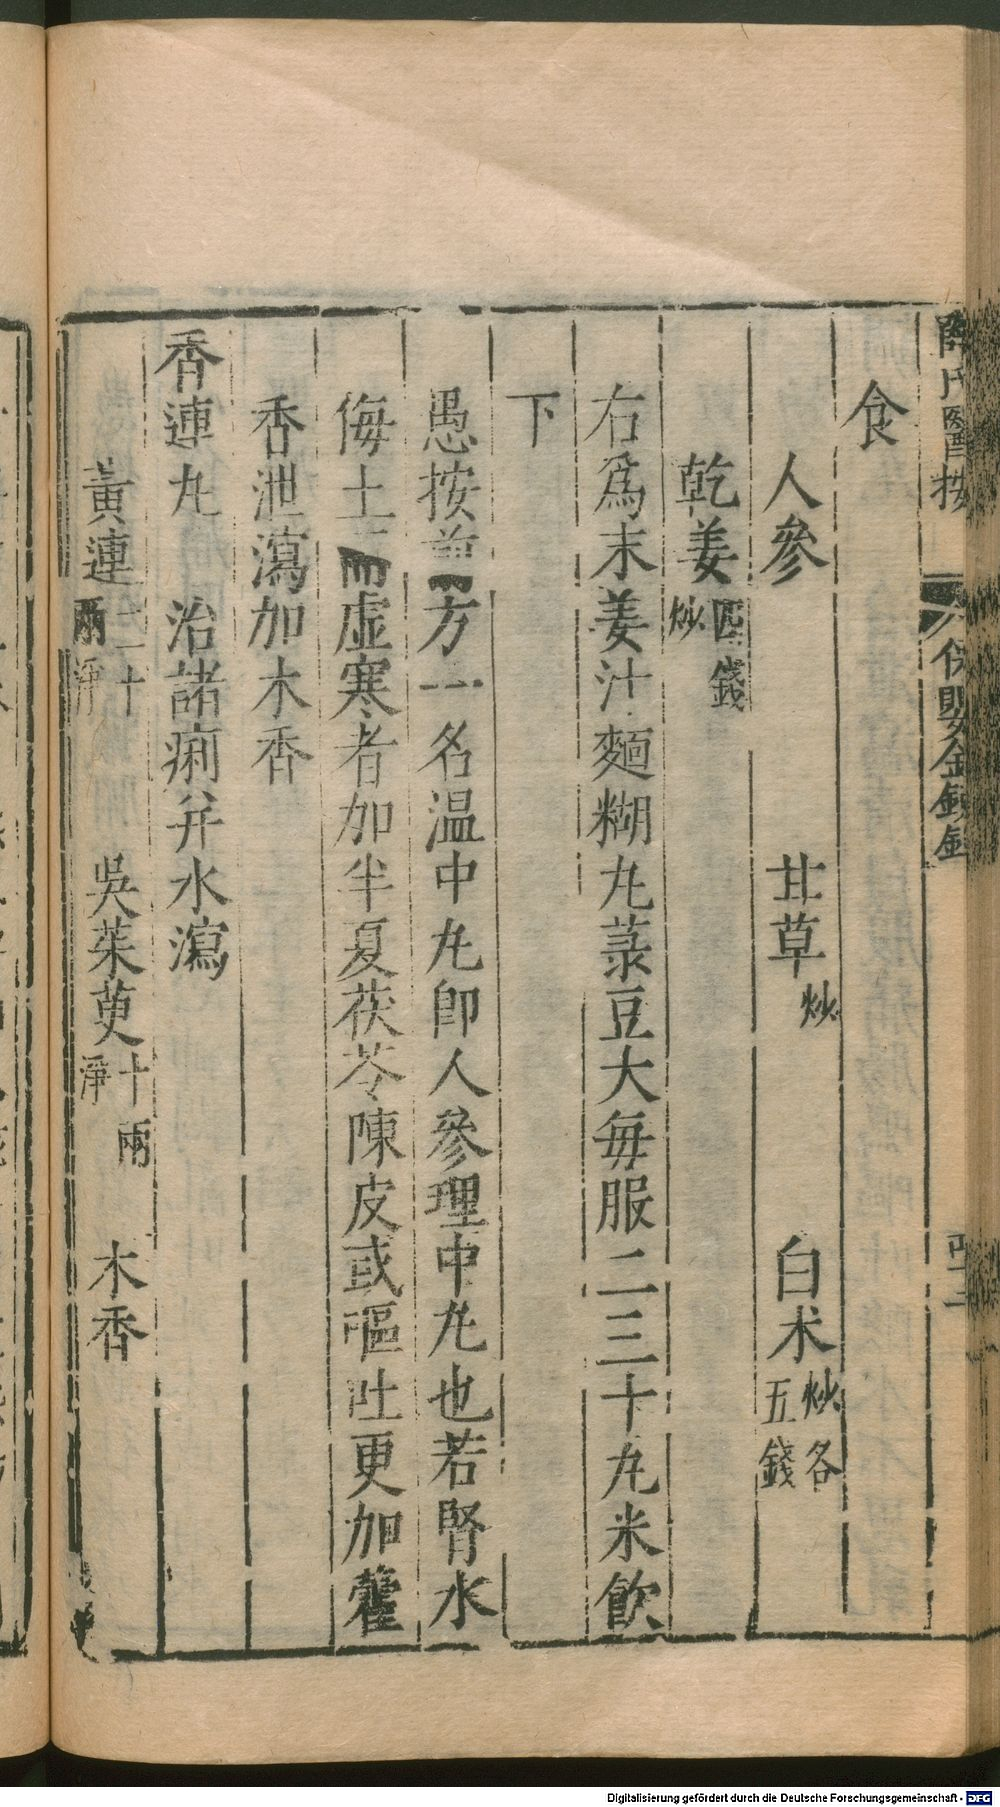 薛氏醫按 保嬰金鏡錄
食
人參 甘草炒 白朮炒各五錢
乾姜四錢炒
右爲末姜汁麵糊丸菉豆大每服二三十丸米飲
下
愚按前方一名温中丸卽人參理中丸也若腎水
侮土而虛寒者加半夏茯苓陳皮或嘔吐更加藿
香泄瀉加木香
香連丸 治諸痢幷水瀉
黃連二十兩淨 吳茱萸十兩淨 木香
Digitalisierung gefördert durch die Deutsche Forschungsgemeinschaft - DFG